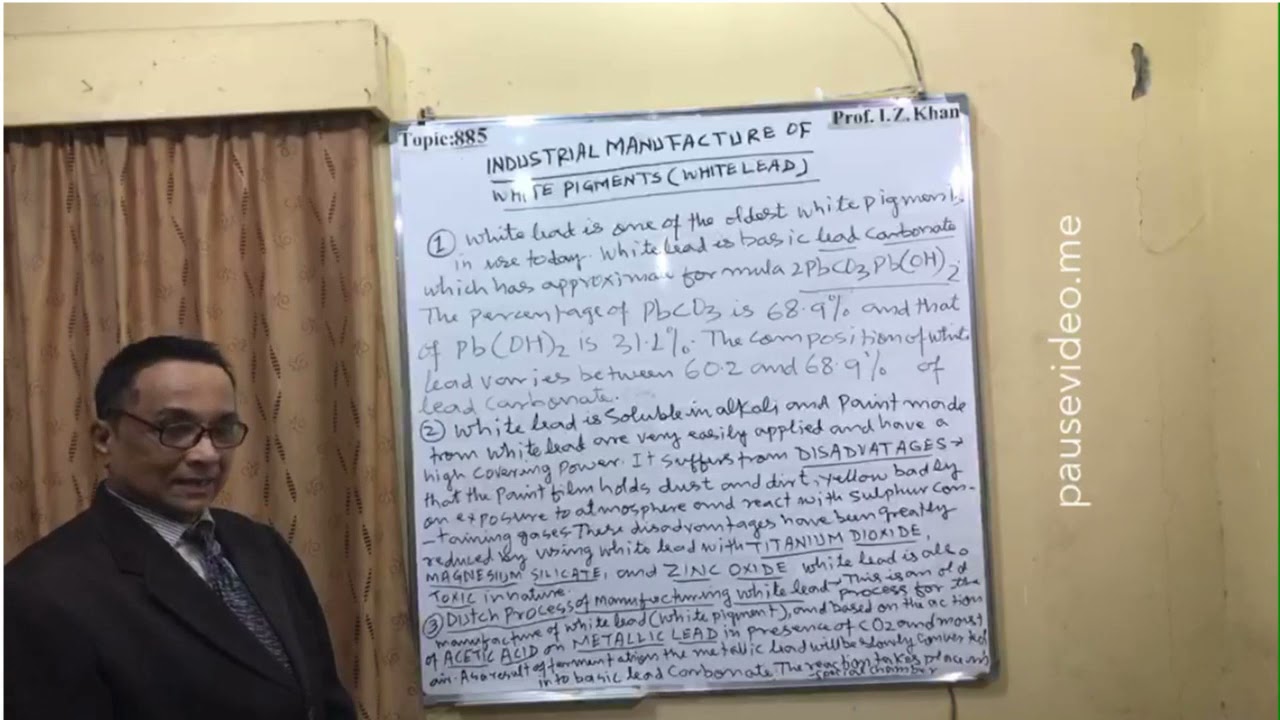 Topic:885
Prof. I.Z. Khan
INDUSTRIAL MANUFACTURE OF
WHITE PIGMENTS (WHITE LEAD)
① White lead is one of the oldest white pigments
in use today. White lead is basic lead carbonate
which has approximate formula 2PbCO3Pb(OH)2
The percentage of PbCO3 is 68.9% and that
of Pb(OH)2 is 31.1%. The composition of white
lead varries between 60.2 and 68.9% of
lead carbonate.
② White lead is soluble in alkali and paint made
from white lead are very easily applied and have a
high covering power. It suffers from DISADVATAGES →
that the paint film holds dust and dirt, yellow badly
on exposure to atmosphere and react with sulphur con-
-taining gases These disadvantages have been greatly
reduced by using white lead with TITANIUM DIOXIDE,
MAGNESIUM SILICATE, and ZINC OXIDE white lead is also
TOXIC in nature.
③ Dutch Process of manufacturing white lead - This is an old process for the
manufacture of white lead (white pigment), and based on the action
of ACETIC ACID on METALLIC LEAD in presence of CO2 and moist
air. As a result of fermentation the metallic lead will be slowly converted
in to basic lead Carbonate. The reaction takes place in
special chamber
pausevideo.me